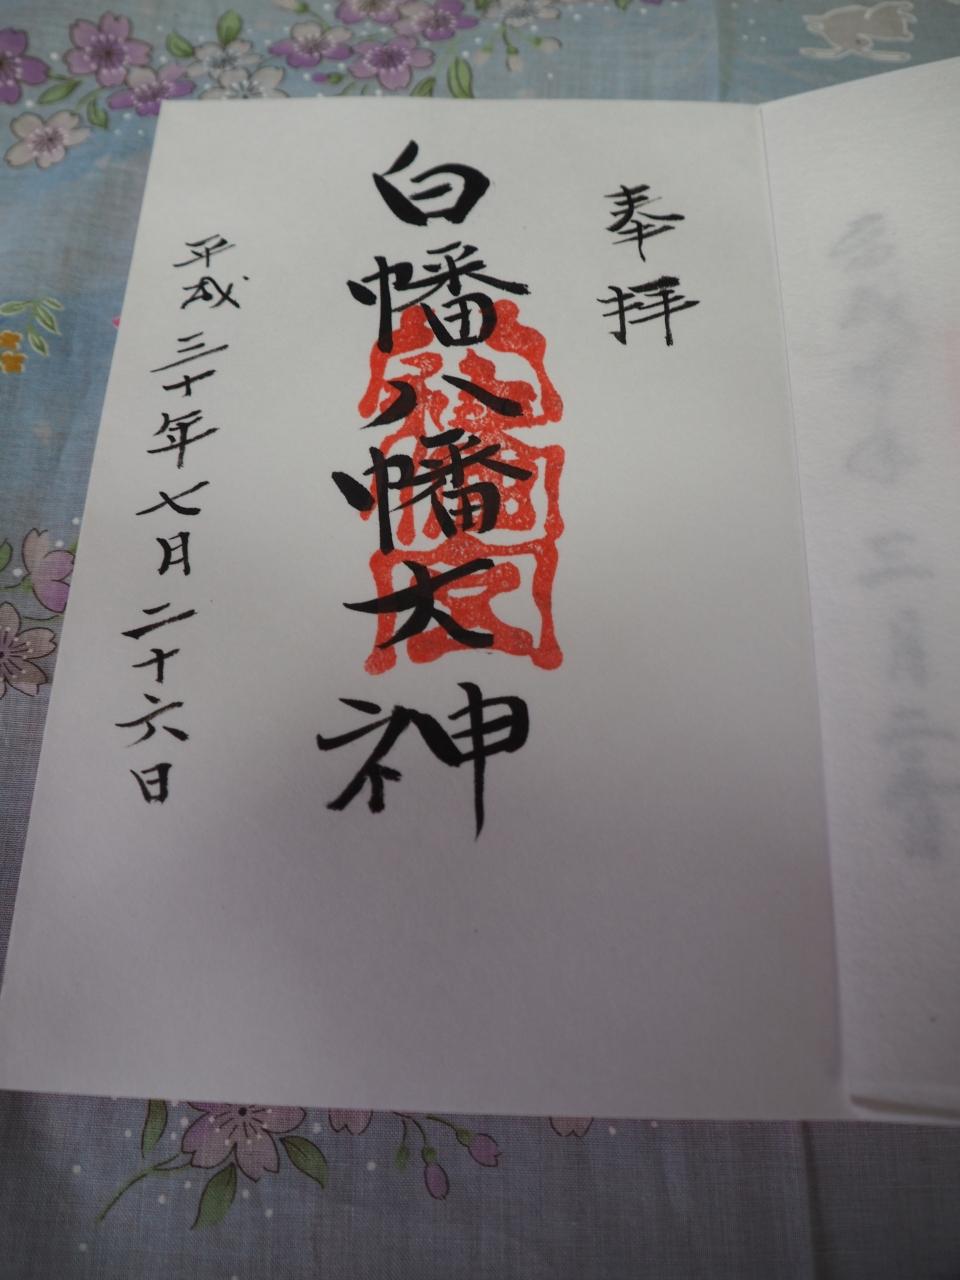 奉拝
白幡八幡大神
平成三十年七月二十六日